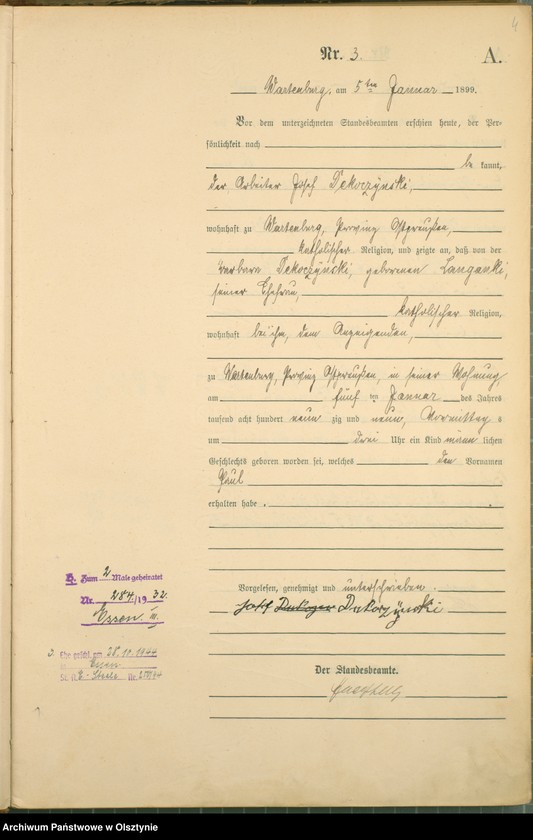 4
Nr. 3. A.
Wartenburg. am 5ten Januar 1899.
Vor dem unterzeichneten Standesbeamten erschien heute, der Per-
sönlichkeit nach
be kannt,
der Arbeiter Josef Dekoczynski,
wohnhaft zu Wartenburg, Provinz Ostpreußen,
katholischer Religion, und zeigte an, daß von der
Barbara Dekoczynski, geborenen Langanki,
seiner Ehefrau,
katholischer Religion,
wohnhaft bei ihm, dem Anzeigenden,
zu Wartenburg, Provinz Ostpreußen, in seiner Wohnung,
am fünf ten Januar des Jahres
tausend acht hundert neun zig und neun, Vormittag s
um drei Uhr ein Kind männ lichen
Geschlechts geboren worden sei, welches den Vornamen
Paul
erhalten habe.
Vorgelesen, genehmigt und unterschrieben.
Josef Dekoczynski
Der Standesbeamte.
H. Zum 2 Male geheiratet
Nr. 284/1932.
Essen III
2. Ehe geschl. am 28.10.1944
in Essen
St. A. E.-Steele Nr.
Archiwum Państwowe w Olsztynie